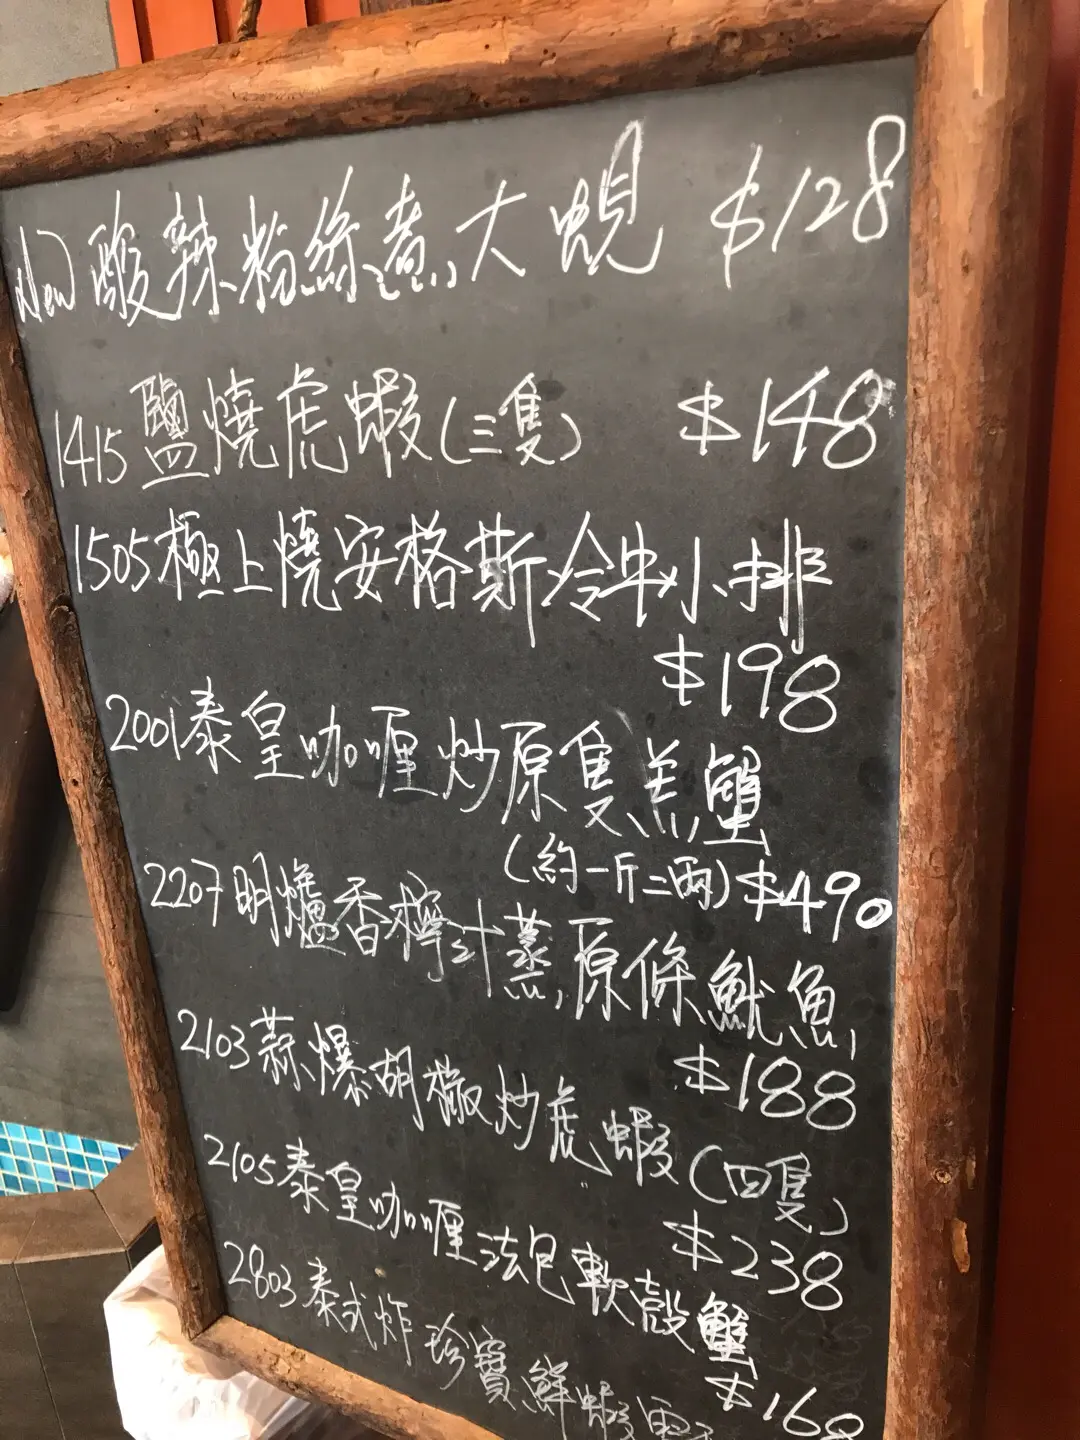 New 酸辣粉絲煮大蜆 $128
1415 鹽燒虎蝦(三隻) $148
1505 極上燒安格斯冷牛小排
$198
2001 泰皇咖喱炒原隻羔蟹
(約一斤二兩) $490
2207 明爐香檸汁蒸原條魷魚
$188
2103 蒜爆胡椒炒虎蝦(四隻)
$238
2105 泰皇咖喱法包軟殼蟹
$168
2803 泰式炸珍寶鮮蝦